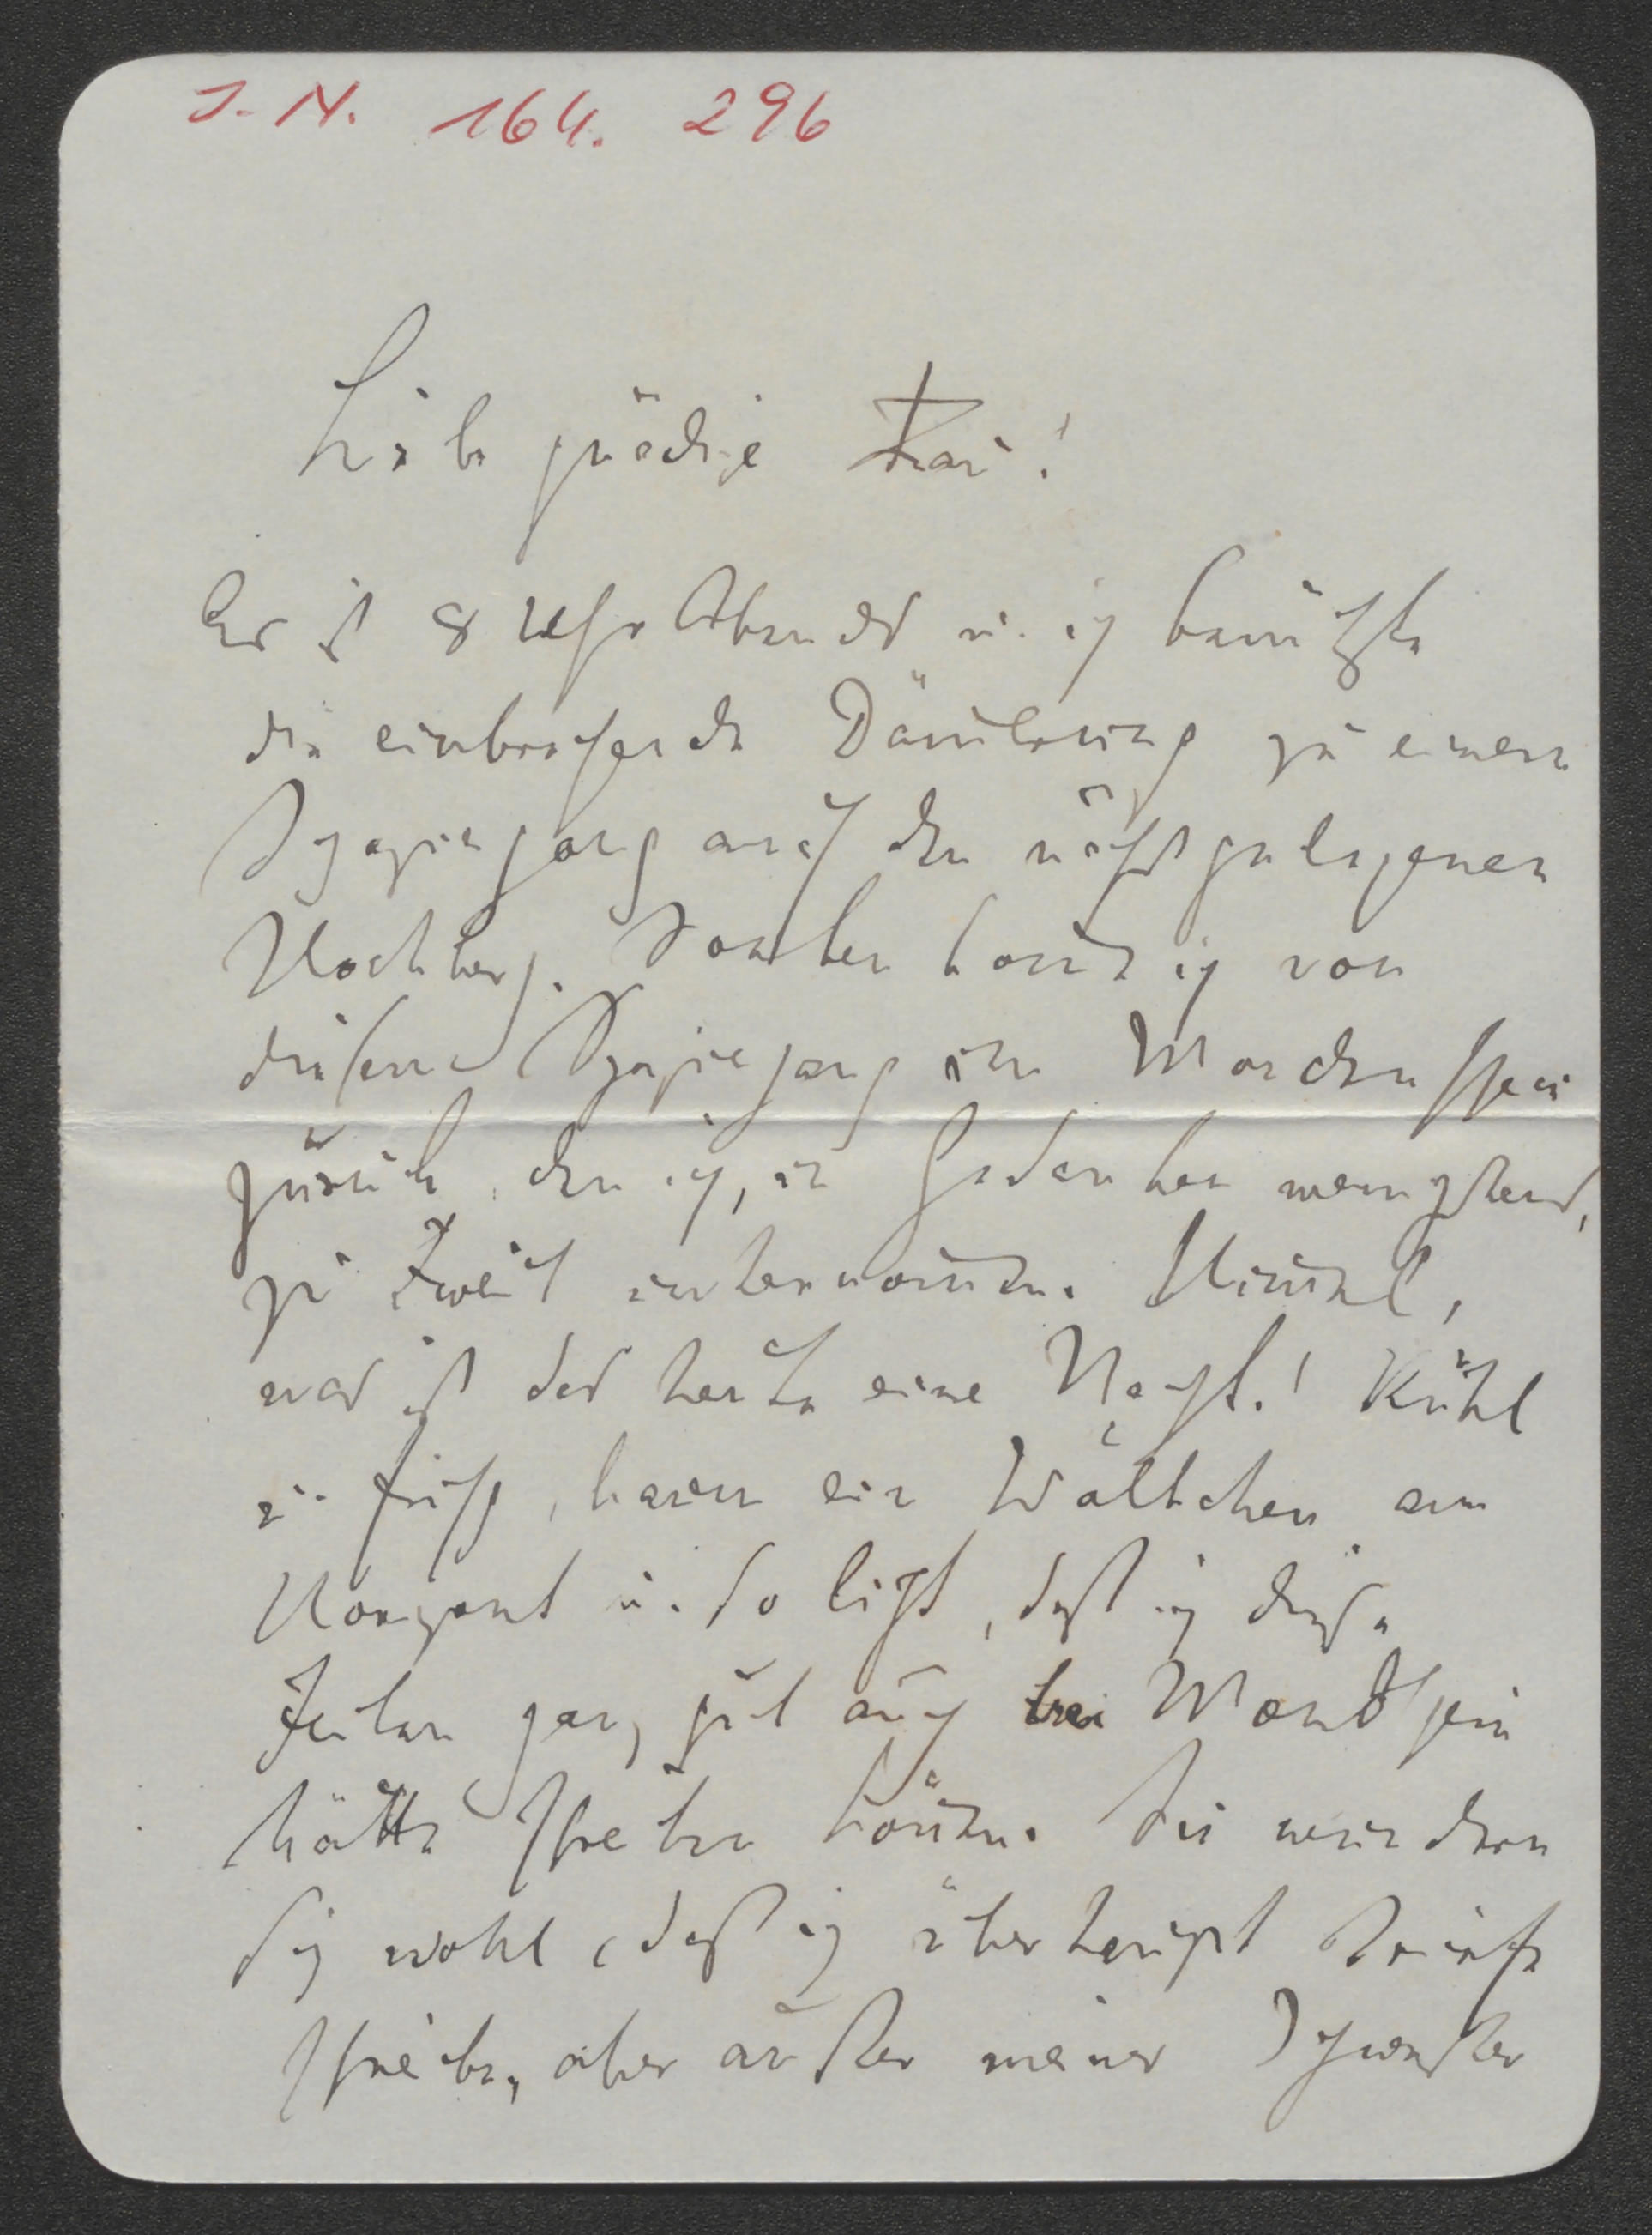 J. N. 164. 296
Liebe gnädige Frau!
Es ist 8 Uhr Abends u. ich benützte
die einbrechende Dämerung zu einem
Spaziergang auf den nächstgelegenen
Hochberg. Soeben komme ich von
diesem Spaziergang im Mondenschein
zurück, den ich, in Gedanken wenigstens,
zu Zweit unternommen. Himmel,
was ist das heute eine Nacht! Kühl
u. frisch, kaum ein Wölkchen am
Horizont u. so licht, daß ich diese
Zeilen ganz gut auch bei Mondschein
hätte schreiben können. Sie wundern
sich wohl, daß ich überhaupt Briefe
schreibe, aber außer meiner Schwester